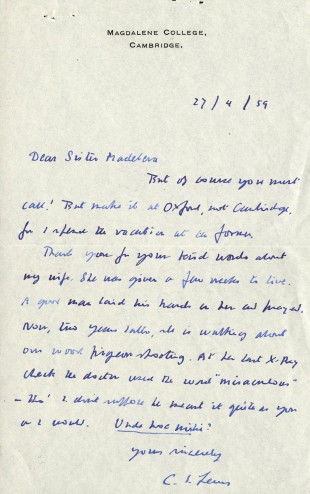 MAGDALENE COLLEGE,
CAMBRIDGE.
27/4/59
Dear Sister Madeleva
But of course you must
call! But make it at Oxford, not Cambridge,
for I spend the vacation at the former.
Thank you for your kind words about
my wife. She was given a few weeks to live.
A good man laid his hands on her and prayed.
Now, two years later, she is walking about
our wood pigeon shooting. At her last X-Ray
check the doctor used the word "miraculous"
– tho' I don't suppose he meant it quite as you
or I would. Unde hoc mihi?
Yours sincerely
C. S. Lewis